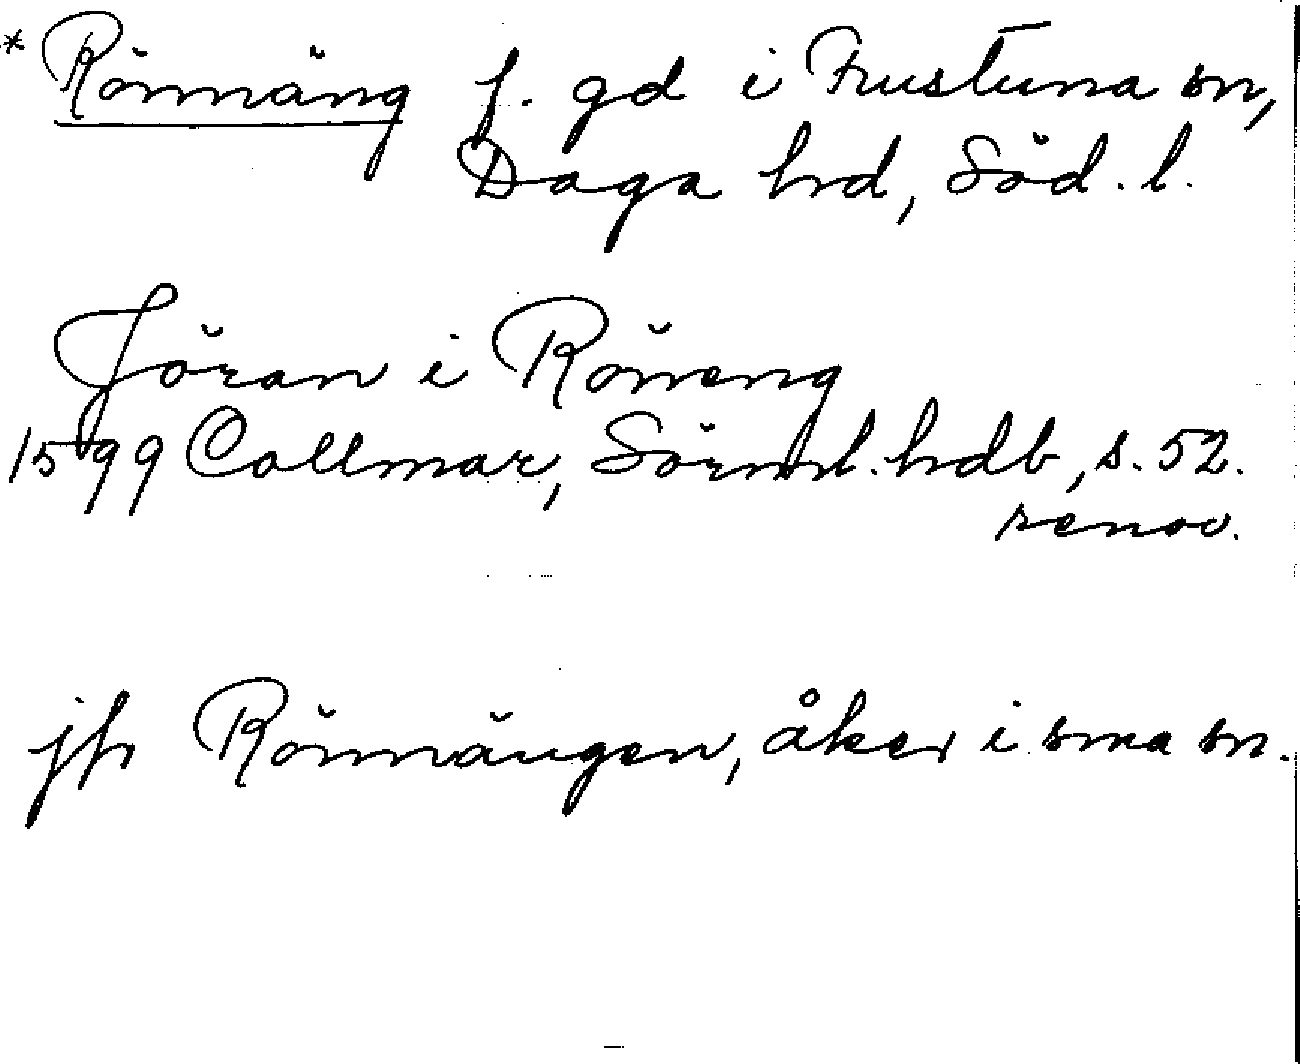 * Rönnäng f. gd i Frustuna sn,
Daga hd, Söd. l.
Jöran i Röneng
1599 Collmar, Sörml. hdb, s. 52.
renov.
jfr Rönnängen, åker i sma sn.